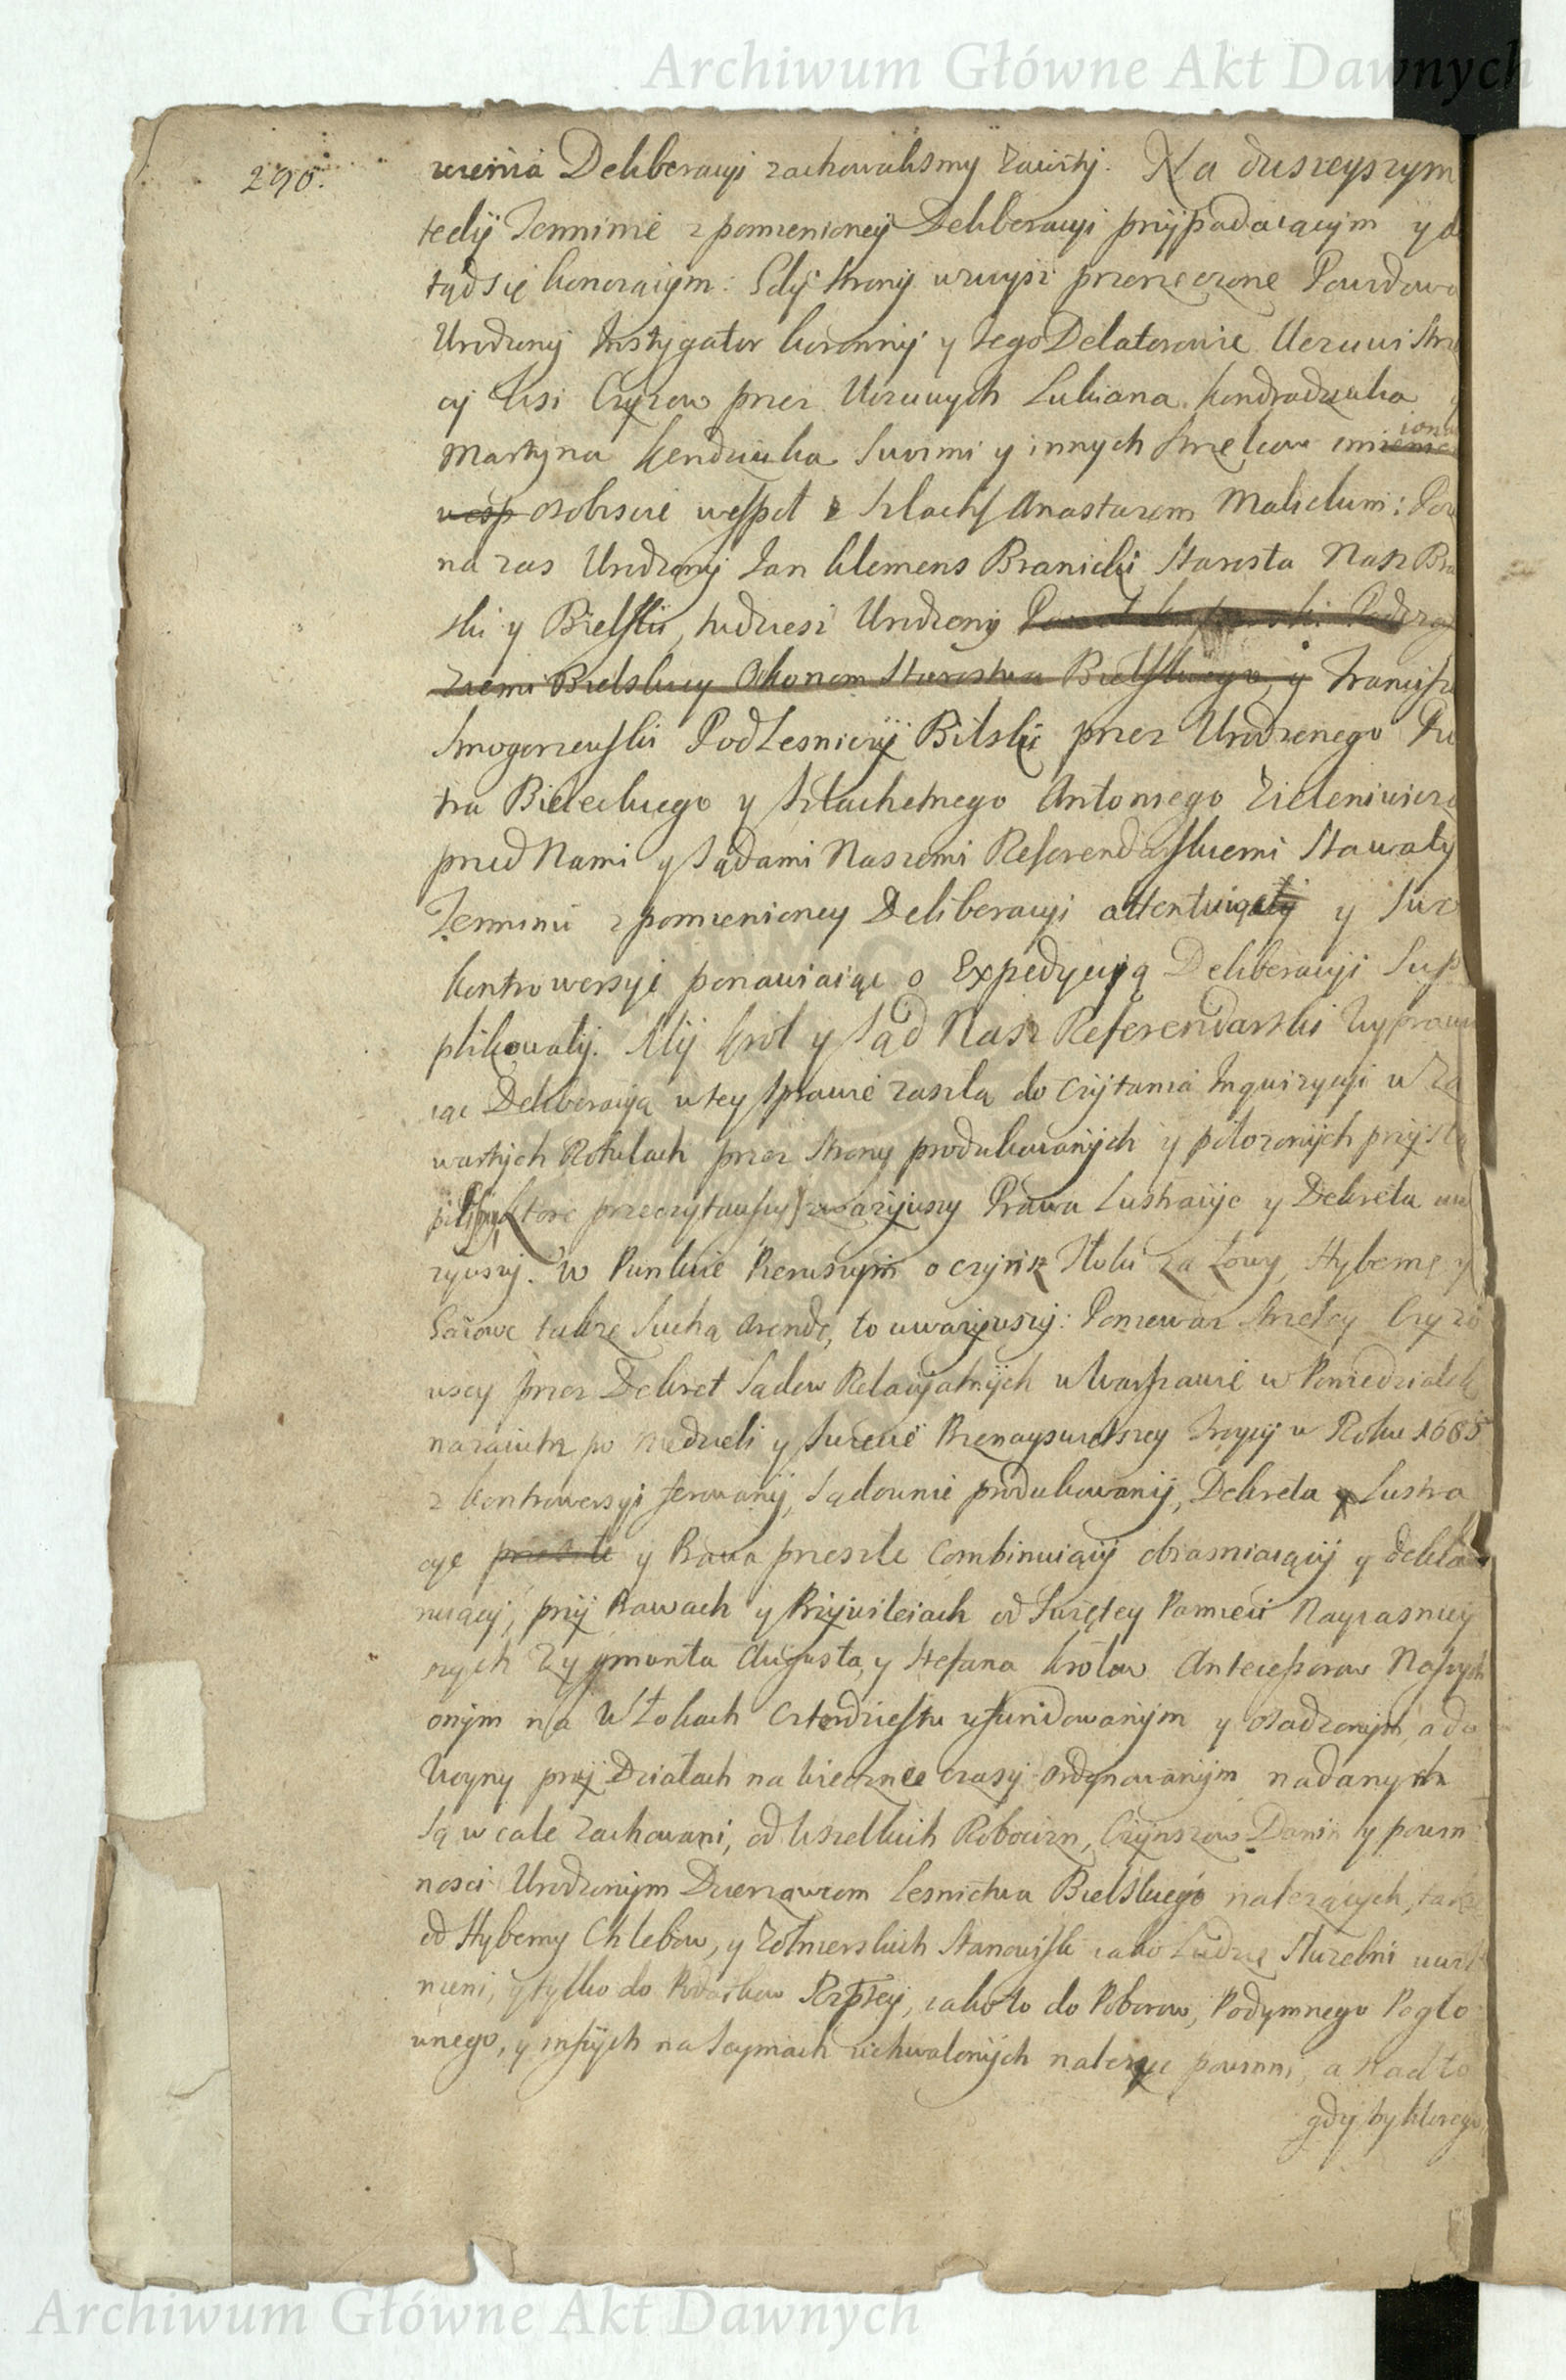 Archiwum Główne Akt Dawnych
290.
Deliberacyi zachowalismy Na dzisieyszym
tedy Terminie z pomienioney Deliberacyi przypadaiącym y
tądsię konczącym: Gdy strony wzwysz przerzeczone Powodowa
Urodzony Instygator koronny y iego Delatorowie Uczciwi Strze
cy Wsi Czyzow przez Uczciwych Lukiana Kondradziuka
Martyna Kendziuka Swoimi y innych Strzelcow imieniem
wesp osobiscie wespoł z Szlach Anastazem Malickim: Poz
na zas Urodzony Jan Klemens Branicki Starosta Nasz Bra
ski y Bielski, tudziesz Urodzony
ziemi Bielskiey Ekonom Starostwa Bielskiego, y Francisz
Smogorzewski PodLesniczy Bilski przez Urodzonego Pio
tra Bieleckiego y Szlachetnego Antoniego Zieleniewicza
przed Nami y Sądami Naszemi Referendarskiemi Stawały
Terminu z pomienioney Deliberacyi attentuiąc y swe
kontrowersye ponawiaiąc o Expedycyią Deliberacyi Sup
plikowały. My Krol y Sąd Nasz Referendarski Wyprawu
iąc Deliberacyą w tey sprawie zaszłą do czytania Inquizycyi w Za
wartych Rotulach przez strony produkowanych y położonych przystą
pilismy, ktore przeczytawszy zwazywszy Prawa Lustracye y Dekreta uwa
zywszy. W Punkcie Pierwszym o czynsz Tłoki za Łowy, Hybernę y
Gaiowe takze Suchą Arendę, to uwazywszy: Poniewaz Strzelcy Czyzo
wscy przez Dekret Sądow Relacyalnych w Warszawie w Poniedziałek
nazaiutrz po Niedzieli y Swięcie Przenayswiętszey Troycy w Roku 1685
z kontrowersyi ferowany, Sądownie produkowany, Dekreta y Lustra
cye przeszłe y Prawa przeszłe combinuiący obiasniaiący y deklar
ruiący, przy Prawach y Przywileiach od Swiętey Pamięci Nayiasniey
szych Zygmunta Augusta, y Stefana Krolow Antecessorow Naszych
onym na Włokach czterdziestu ufundowanym y osadzonym, a do
Woyny przy Działach na wieczne czasy ordynowanym nadanych
Są w cale zachowani, od wszelkich Robocizn, Czynszow Danin y powin
nosci Urodzonym Dzierzawcom Lesnictwa Bielskiego nalezących, takze
od Hyberny Chlebow, y Zołnierskich Stanowisk iako Ludzie Słuzebni uwol
nieni, y tylko do Podatkow Rzptey, iako to do Poborow, Podymnego Pogło
wnego, y inszych na Seymach uchwalonych nalezyc powinni, a nad to
gdyby ktorego
Archiwum Główne Akt Dawnych